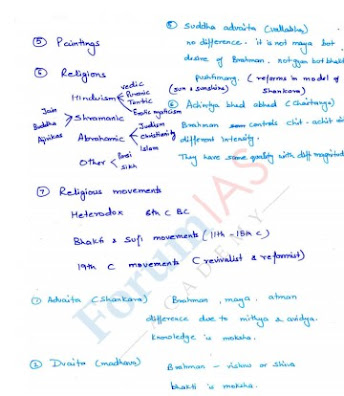 ⑤ Paintings
⑥ Religions
Hinduism
Vedic
Puranic
Tantric
Shramanic
Jain
Buddha
Ajivikas
Exotic mysticism
Abrahamic
Judaism
christianity
Islam
Other
Parsi
Sikh
⑦ Religious movements
Heterodox 6th C BC
Bhakti & Sufi movements (11th - 18th C)
19th C movements (revivalist & reformist)
① Advaita (Shankara) Brahman, maya. atman
difference due to mithya & avidya.
Knowledge is moksha.
Dvaita (madhava) Brahman – vishnu or shiva
bhakti is moksha.
⑤ Suddha advaita (vallabha)
no difference. it is not maya but
desire of Brahman. not gyan but bhakti
Pushtimarg. (reforms in model of
(sun & sunshine) Shankara)
⑥ Achintya bhed abhed (Chaitanya)
Brahman controls chit-achit
different intensity.
They have same quality with diff magnitude
ForumIAS
ACADEMY